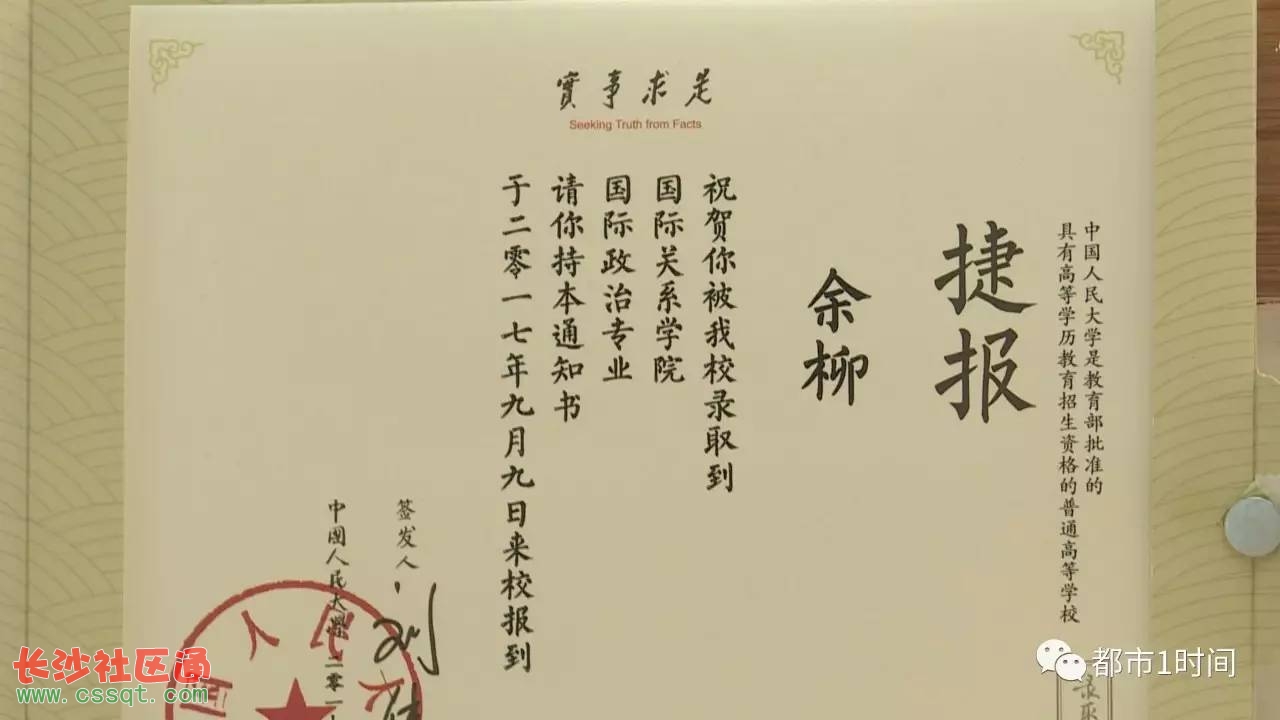 實事求是
Seeking Truth from Facts
中国人民大学是教育部批准的
具有高等学历教育招生资格的普通高等学校
捷报
余柳
祝贺你被我校录取到
国际关系学院
国际政治专业
请你持本通知书
于二零一七年九月九日来校报到
签发人
刘
中國人民大學
二零一
人民大
长沙社区通
www.cssqt.com
都市1时间